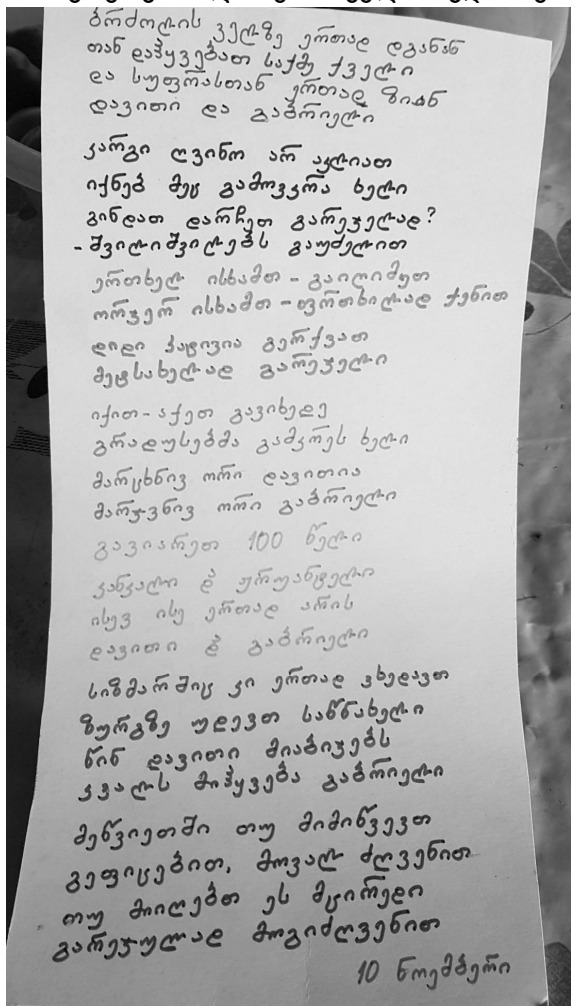 ბრძოლის ველზე ერთად დგანან
თან დაჰყვებათ საქმე ქველი
და სუფრასთან ერთად ზიან
დავითი და გაბრიელი
კარგი ღვინო არ აკლიათ
იქნებ მეც გამოვკრა ხელი
გინდათ დარჩეთ გარეჯელად?
- შვილიშვილებს გაუძელით
ერთხელ ისხამთ - გაიღიმეთ
ორჯერ ისხამთ - ფრთხილად ქენით
დიდი პატივია გერქვათ
მეტსახელად გარეჯელი
იქით-აქეთ გავიხედე
გრადუსებმა გამკრეს ხელი
მარცხნივ ორი დავითია
მარჯვნივ ორი გაბრიელი
გავიარეთ 100 წელი
კანკალი &
ისევ ისე ერთად არის
დავითი & გაბრიელი
სიზმარშიც კი ერთად ვხედავთ
ზურგზე უდევთ საწნახელი
წინ დავითი მიაბიჯებს
კვალს მიჰყვება გაბრიელი
მეწვიეთში თუ მიმიწვევთ
გეფიცებით, მოვალ ძღვენით
თუ მიიღებთ ეს მცირედი
გარეჯულად მოგიძღვენით
10 ნოემბერი